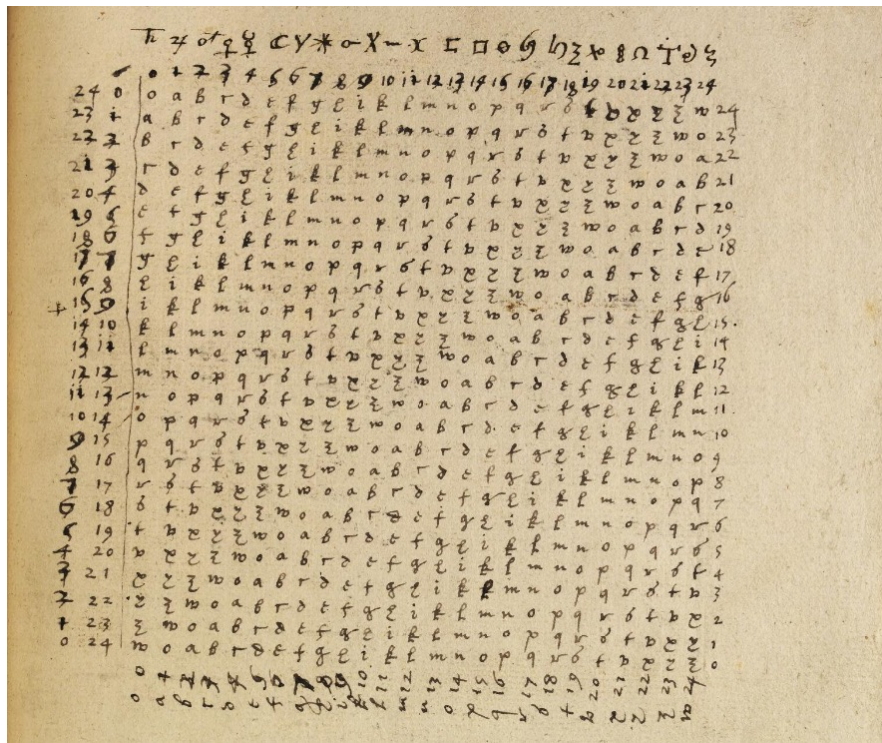 ♄ ♃ ♂ ♀ ☿ ☾ Y * X □ Ω
0 1 2 3 4 5 6 7 8 9 10 11 12 13 14 15 16 17 18 19 20 21 22 23 24
24 0 o a b c d e f g h i k l m n o p q r s t v x y z w 24
23 1 a b c d e f g h i k l m n o p q r s t v x y z w o 23
22 2 b c d e f g h i k l m n o p q r s t v x y z w o a 22
21 3 c d e f g h i k l m n o p q r s t v x y z w o a b 21
20 4 d e f g h i k l m n o p q r s t v x y z w o a b c 20
19 5 e f g h i k l m n o p q r s t v x y z w o a b c d 19
18 6 f g h i k l m n o p q r s t v x y z w o a b c d e 18
17 7 g h i k l m n o p q r s t v x y z w o a b c d e f 17
16 8 h i k l m n o p q r s t v x y z w o a b c d e f g 16
+ 15 9 i k l m n o p q r s t v x y z w o a b c d e f g h 15
14 10 k l m n o p q r s t v x y z w o a b c d e f g h i 14
13 11 l m n o p q r s t v x y z w o a b c d e f g h i k 13
12 12 m n o p q r s t v x y z w o a b c d e f g h i k l 12
11 13 n o p q r s t v x y z w o a b c d e f g h i k l m 11
10 14 o p q r s t v x y z w o a b c d e f g h i k l m n 10
9 15 p q r s t v x y z w o a b c d e f g h i k l m n o 9
8 16 q r s t v x y z w o a b c d e f g h i k l m n o p 8
7 17 r s t v x y z w o a b c d e f g h i k l m n o p q 7
6 18 s t v x y z w o a b c d e f g h i k l m n o p q r 6
5 19 t v x y z w o a b c d e f g h i k l m n o p q r s 5
4 20 v x y z w o a b c d e f g h i k l m n o p q r s t 4
3 21 x y z w o a b c d e f g h i k l m n o p q r s t v 3
2 22 y z w o a b c d e f g h i k l m n o p q r s t v x 2
1 23 z w o a b c d e f g h i k l m n o p q r s t v x y 1
0 24 w o a b c d e f g h i k l m n o p q r s t v x y z 0
0 1 2 3 4 5 6 7 8 9 10 11 12 13 14 15 16 17 18 19 20 21 22 23 24
o a b c d e f g h i k l m n o p q r s t v x y z w